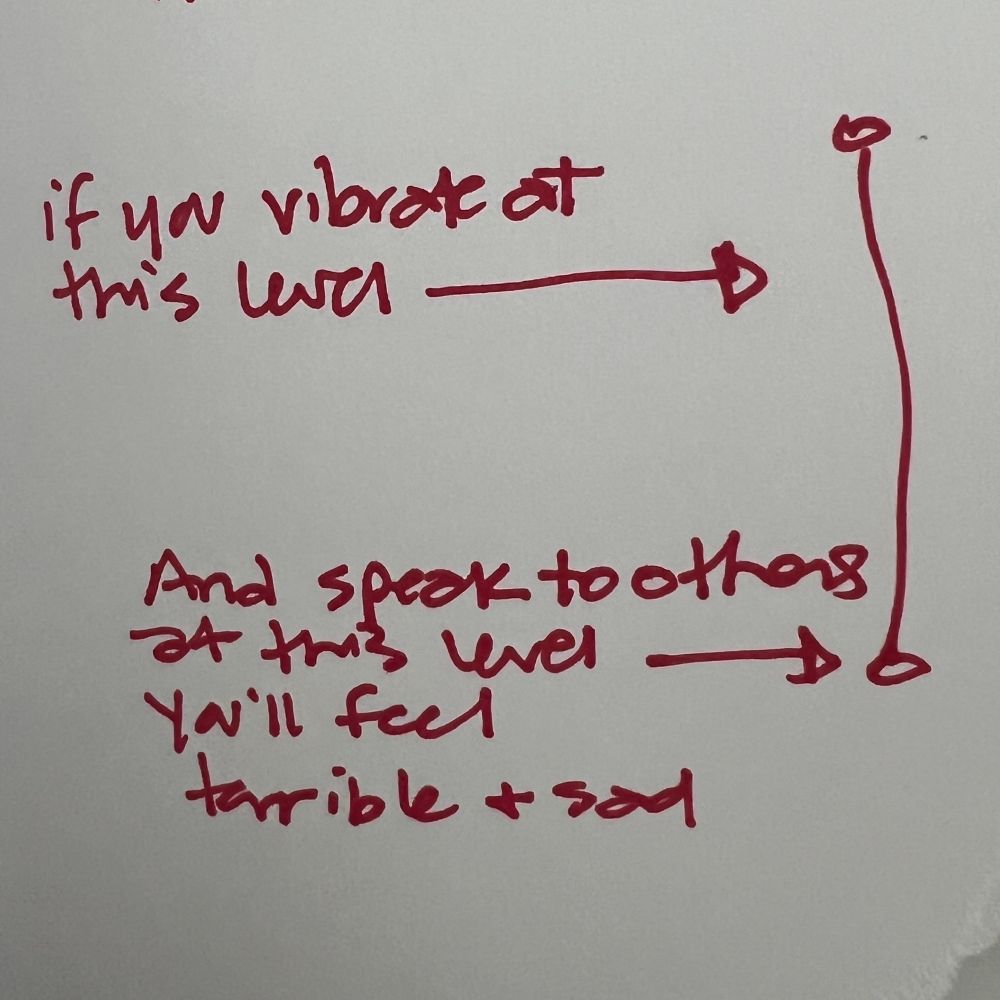 if you vibrate at
this level
And speak to others
at this level
You'll feel
terrible + sad